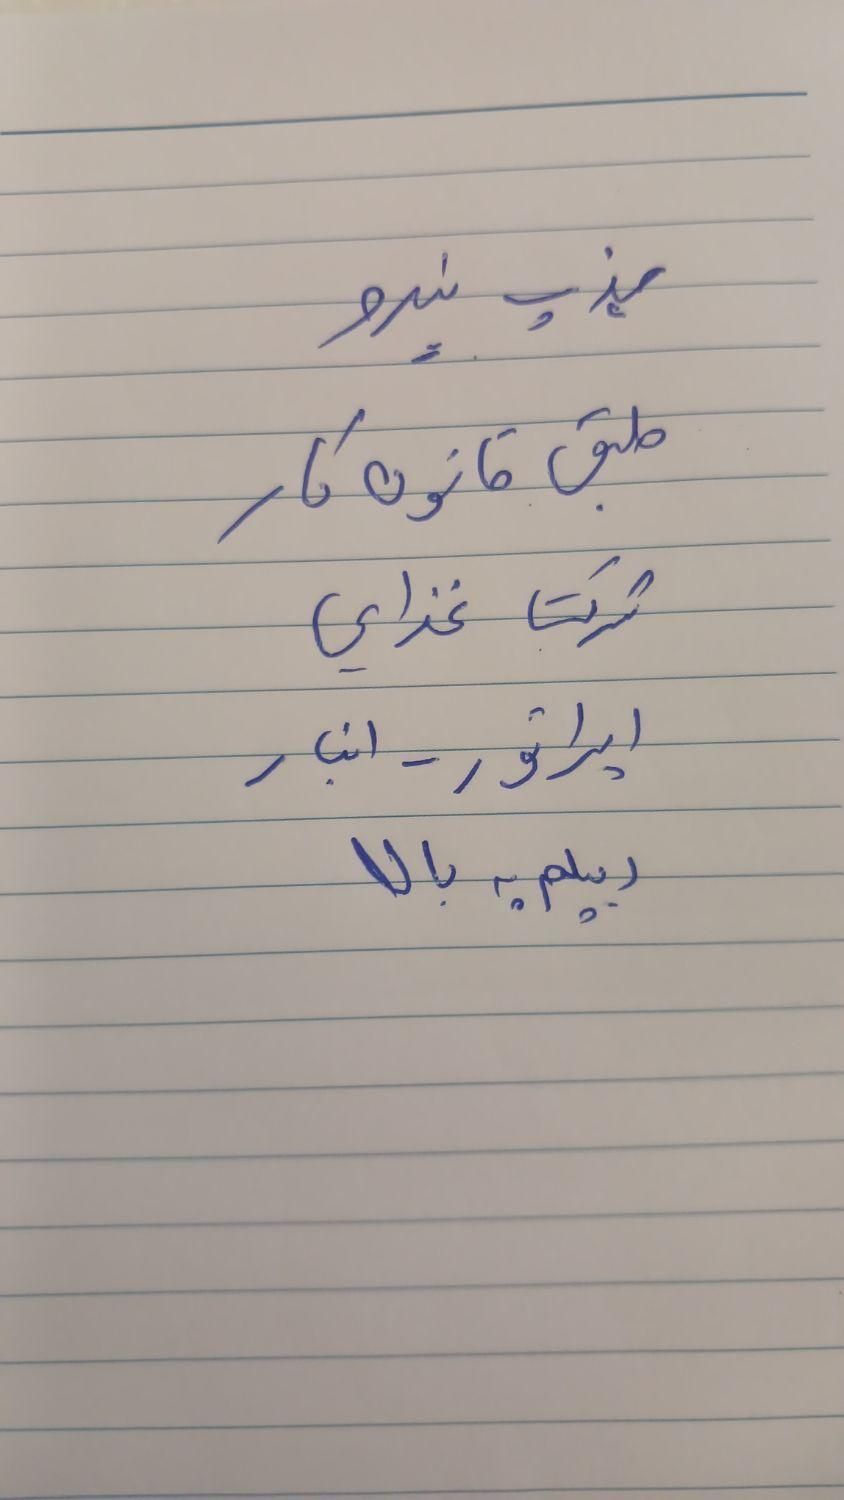 جذب نیرو
طبق قانون کار
شرکت غذایی
اپراتور - انبار
دیپلم به بالا